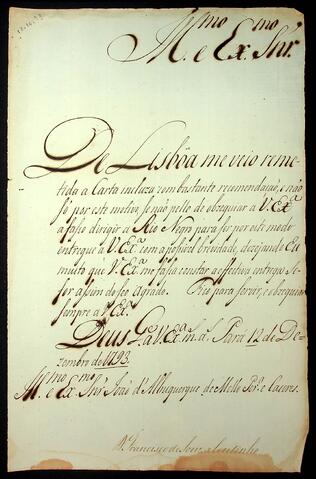 Ill.mo e Ex.mo Snr.
De Lisbôa me veio reme-
tida a Carta incluza com bastante recomendação, e não
só por este motivo, senão pello de obzequiar a V. Ex.ª
a faço dirigir a Rio Negro para ser por este modo
entregue a V. Ex.ª com a possivel brevidade, dezejando Eu
muito que V. Ex.ª me faça constar a effectiva entrega se
for assim do seo agrado. Fico para servir, e obzequiar
sempre a V. Ex.ª
Deus G.e a V. Ex.ª m.s a.s Pará 12 de De-
zembro de 1793.
Ill.mo e Ex.mo Snr. João d'Albuquerque de Mello Per.ª e Caceres.
D. Francisco de Souza Coutinho